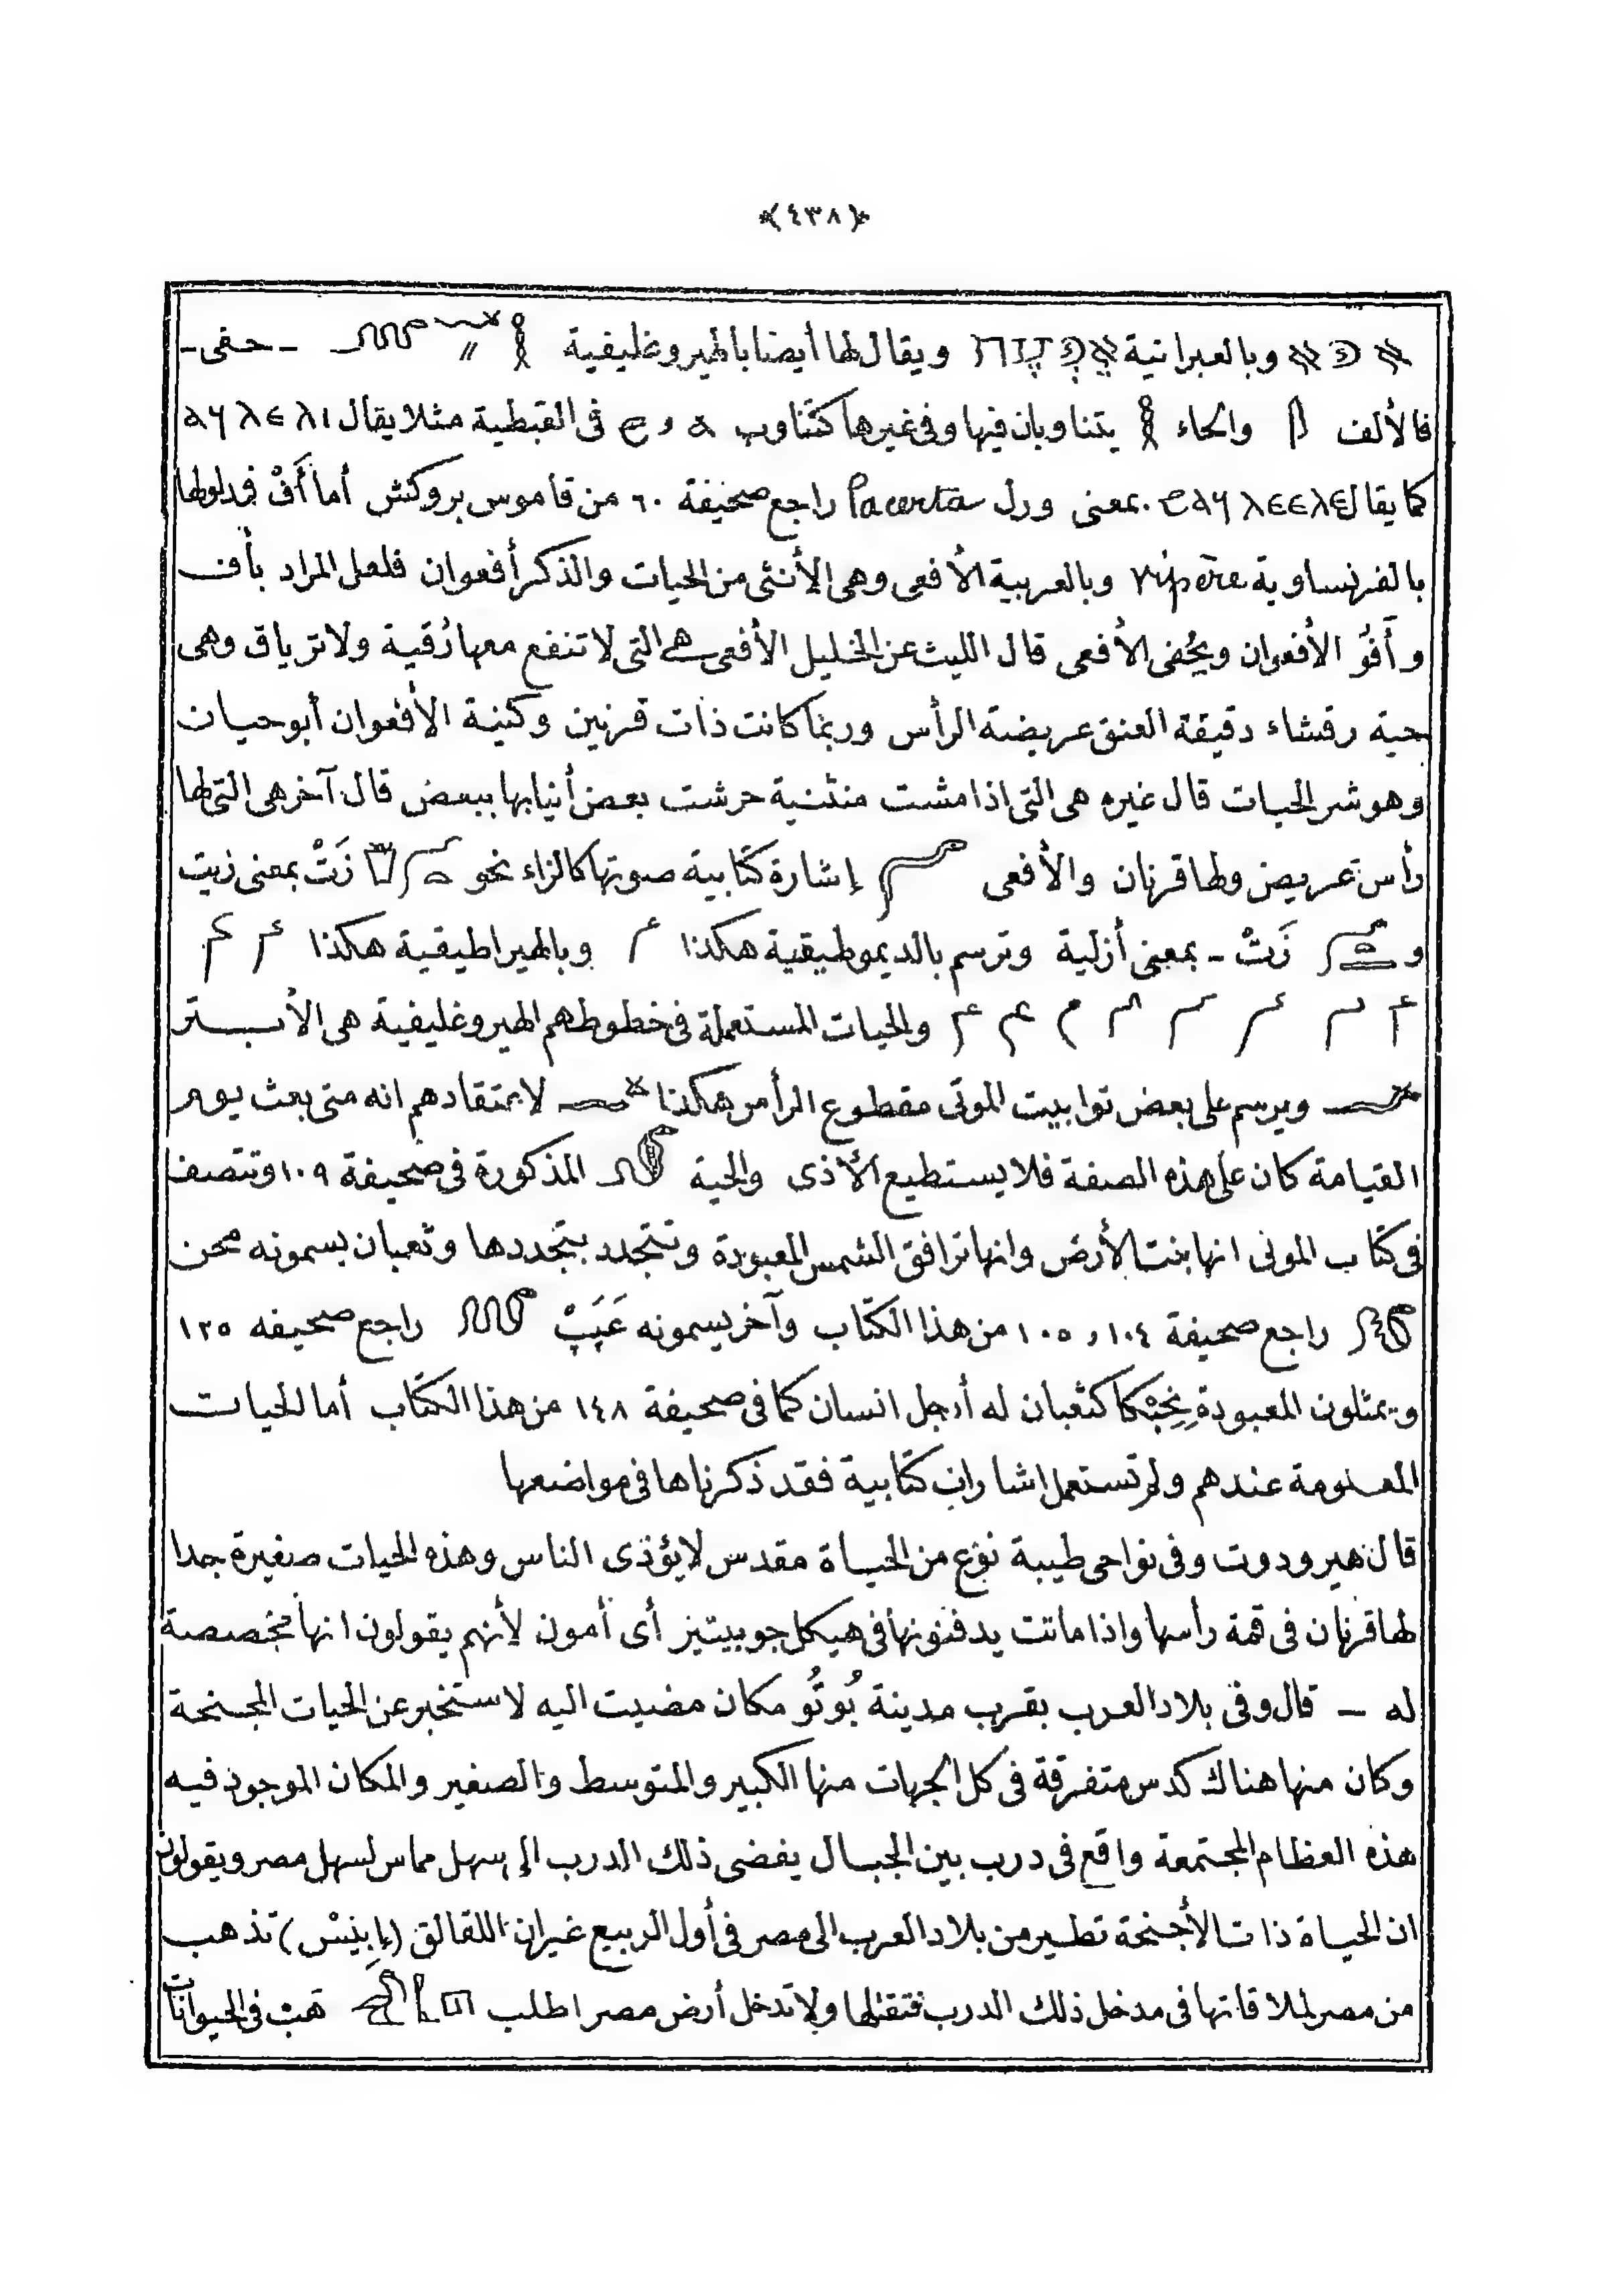 ﴿٤٣٨﴾
وبالعبرانية ويقال لها أيضا بالهيروغليفية - حفى -
فالألف والحاء يتناوبان فيها وفى غيرها كتناوب و فى القبطية مثلا يقال
كما يقال بمعنى ورل Lacerta راجع صحيفة ٦٠ من قاموس بروكش أما أَفْ فمدلولها
بالفرنساوية vipère وبالعربية الأفعى وهى الأنثى من الحيات والذكر أفعوان فلعل المراد بأف
وأَفوُ الأفعوان وبحُفى الأفعى قال الليث عن الخليل الأفعى هى التى لا تنفع معها رُقية ولا ترياق وهى
حية رقشاء دقيقة العنق عريضة الرأس وربما كانت ذات قرنين وكنية الأفعوان أبو حيان
وهو شر الحيات قال غيره هى التى اذا مشت منثنية حرشت بعض أنيابها ببعض قال آخر هى التى لها
رأس عريض ولها قرنان والأفعى إشارة كتابية صوتها كالزاء نحو زَتْ بمعنى زيت
و زَتْ - بمعنى أزلية وترسم بالديموطيقية هكذا وبالهيراطيقية هكذا
والحيات المستعملة فى خطوطهم الهيروغليفية هى الأبستر
ويرسم على بعض توابيت الموتى مقطوع الرأس هكذا لاعتقادهم انه متى بعث يوم
القيامة كان على هذه الصفة فلا يستطيع الأذى والحية المذكورة فى صحيفة ١٠٩ وتتصف
فى كتاب الموتى انها بنت الأرض وانها ترافق الشمس المعبودة وتتجدد بتجددها وثعبان يسمونه محن
راجع صحيفة ١٠٤ و ١٠٥ من هذا الكتاب وآخر يسمونه عَپَپْ راجع صحيفه ١٢٥
ويمثلون المعبودة نِحِبْكا كثعبان له أرجل انسان كما فى صحيفة ١٤٨ من هذا الكتاب أما الحيات
المعلومة عندهم ولم تستعمل اشارات كتابية فقد ذكرناها فى مواضعها
قال هيرودوت وفى نواحى طيبة نوع من الحياة مقدس لا يؤذى الناس وهذه الحيات صغيرة جدا
لها قرنان فى قمة رأسها واذا ماتت يدفنونها فى هيكل جوبيتير أى أمون لأنهم يقولون انها مخصصة
له - قال وفى بلاد العرب بقرب مدينة بُوتُو مكان مضيت اليه لاستخبر عن الحيات المجنحة
وكان منها هناك كدس متفرقة فى كل الجهات منها الكبير والمتوسط والصغير والمكان الموجود فيه
هذه العظام المجتمعة واقع فى درب بين الجبال يفضى ذلك الدرب الى سهل مماس لسهل مصر ويقولون
ان الحياة ذات الأجنحة تطير من بلاد العرب الى مصر فى أول الربيع غير ان اللقالق (إِبِيَسْ) تذهب
من مصر لملاقاتها فى مدخل ذلك الدرب فتقتلها ولا تدخل أرض مصر اطلب هَبْ فى الحيوانات